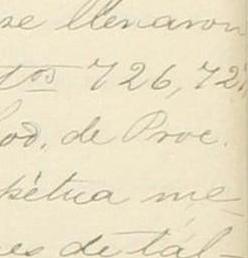 se llenaron
tos 726, 72
Cod. de Proc.
pétua me
es de tal-